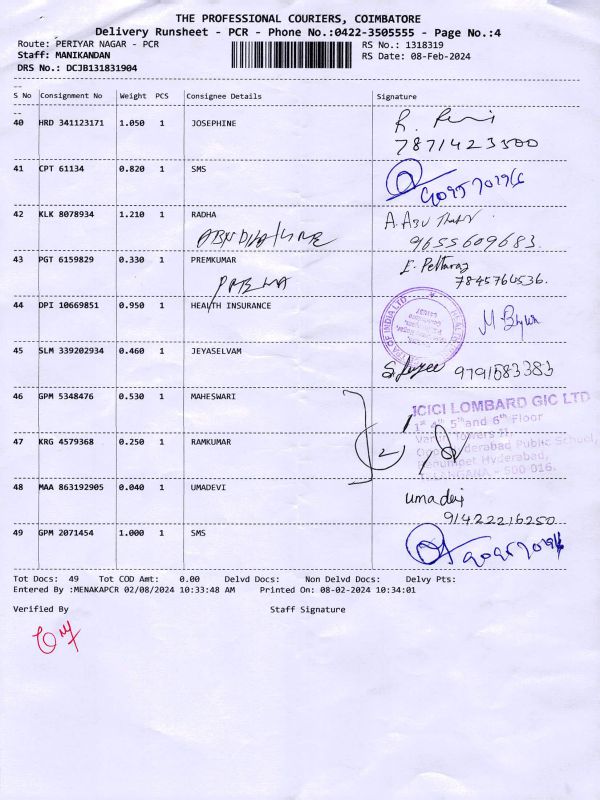 THE PROFESSIONAL COURIERS, COIMBATORE
Delivery Runsheet - PCR - Phone No.:0422-3505555 - Page No.:4
Route: PERIYAR NAGAR - PCR RS No.: 1318319
Staff: MANIKANDAN RS Date: 08-Feb-2024
DRS No.: DCJB131831904
S No Consignment No Weight PCS Consignee Details Signature
40 HRD 341123171 1.050 1 JOSEPHINE
7871423500
41 CPT 61134 0.820 1 SMS
42 KLK 8078934 1.210 1 RADHA
9655609683.
43 PGT 6159829 0.330 1 PREMKUMAR
7845764536.
44 DPI 10669851 0.950 1 HEALTH INSURANCE
45 SLM 339202934 0.460 1 JEYASELVAM
9791583383
46 GPM 5348476 0.530 1 MAHESWARI
ICICI LOMBARD GIC LTD
1st 4th 5th and 6th Floor
47 KRG 4579368 0.250 1 RAMKUMAR
Hyderabad Public School,
Hyderabad,
TELANGANA - 500 016.
48 MAA 863192905 0.040 1 UMADEVI
uma devi
91422216250
49 GPM 2071454 1.000 1 SMS
Tot Docs: 49 Tot COD Amt: 0.00 Delvd Docs: Non Delvd Docs: Delvy Pts:
Entered By :MENAKAPCR 02/08/2024 10:33:48 AM Printed On: 08-02-2024 10:34:01
Verified By Staff Signature